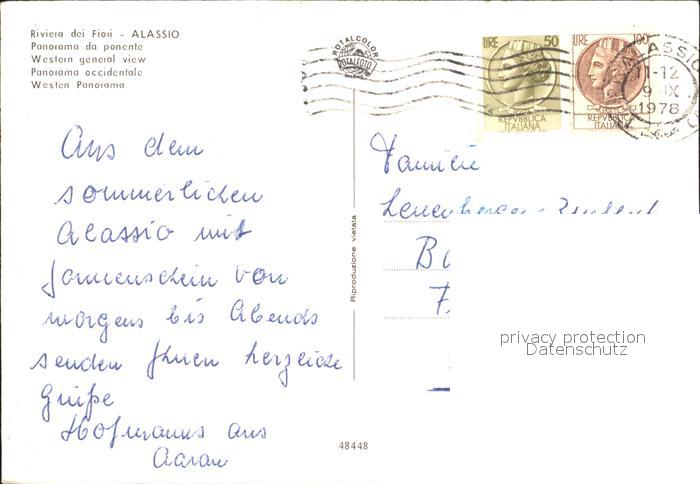 Riviera dei Fiori - ALASSIO
Panorama da ponente
Western general view
Panorama occidentale
Westen Panorama
ROTALCOLOR
ROTALFOTO
LIRE 50
REPVBBLICA
ITALIANA
LIRE 100
REPVBBLICA
ITALIANA
ALASSIO
11-12
9 IX
1978
Aus dem
sommerlichen
Alassio mit
Sonnenschein von
morgens bis Abends
senden Ihnen herzliche
Grüße
Hofmanns aus
Aarau
Riproduzione vietata
Familie
48448
privacy protection
Datenschutz